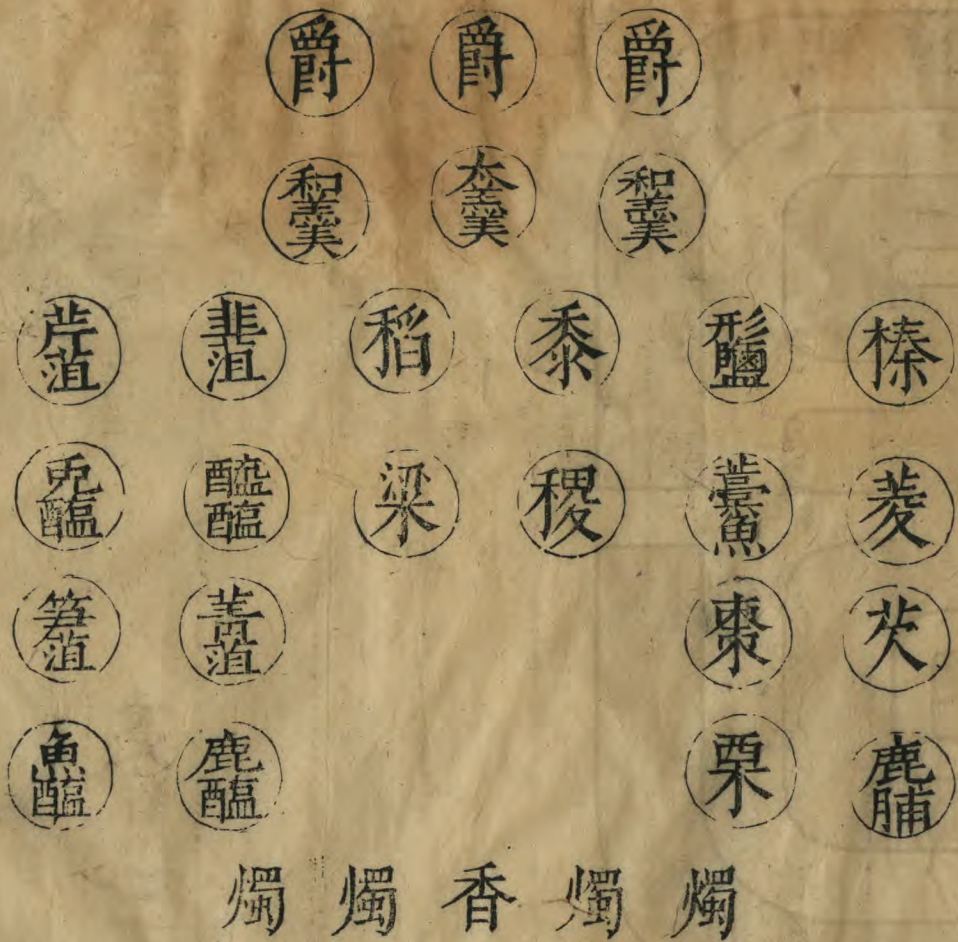 爵 爵 爵
和羹 太羹 和羹
芹菹 韭菹 稻 黍 形鹽 榛
兎醢 醓醢 粱 稷 藁魚 菱
笋菹 菁菹 棗 芡
魚醢 鹿醢 栗 鹿脯
燭 燭 香 燭 燭